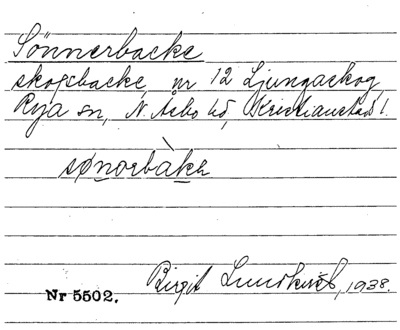 Sönnerbacke
skogsbacke, nr 12 Ljungaskog,
Rya sn, N. Åsbo hd, Kristianstad l.
sønorbàkɐ
Birgit Lundkvist, 1938.
Nr 5502.